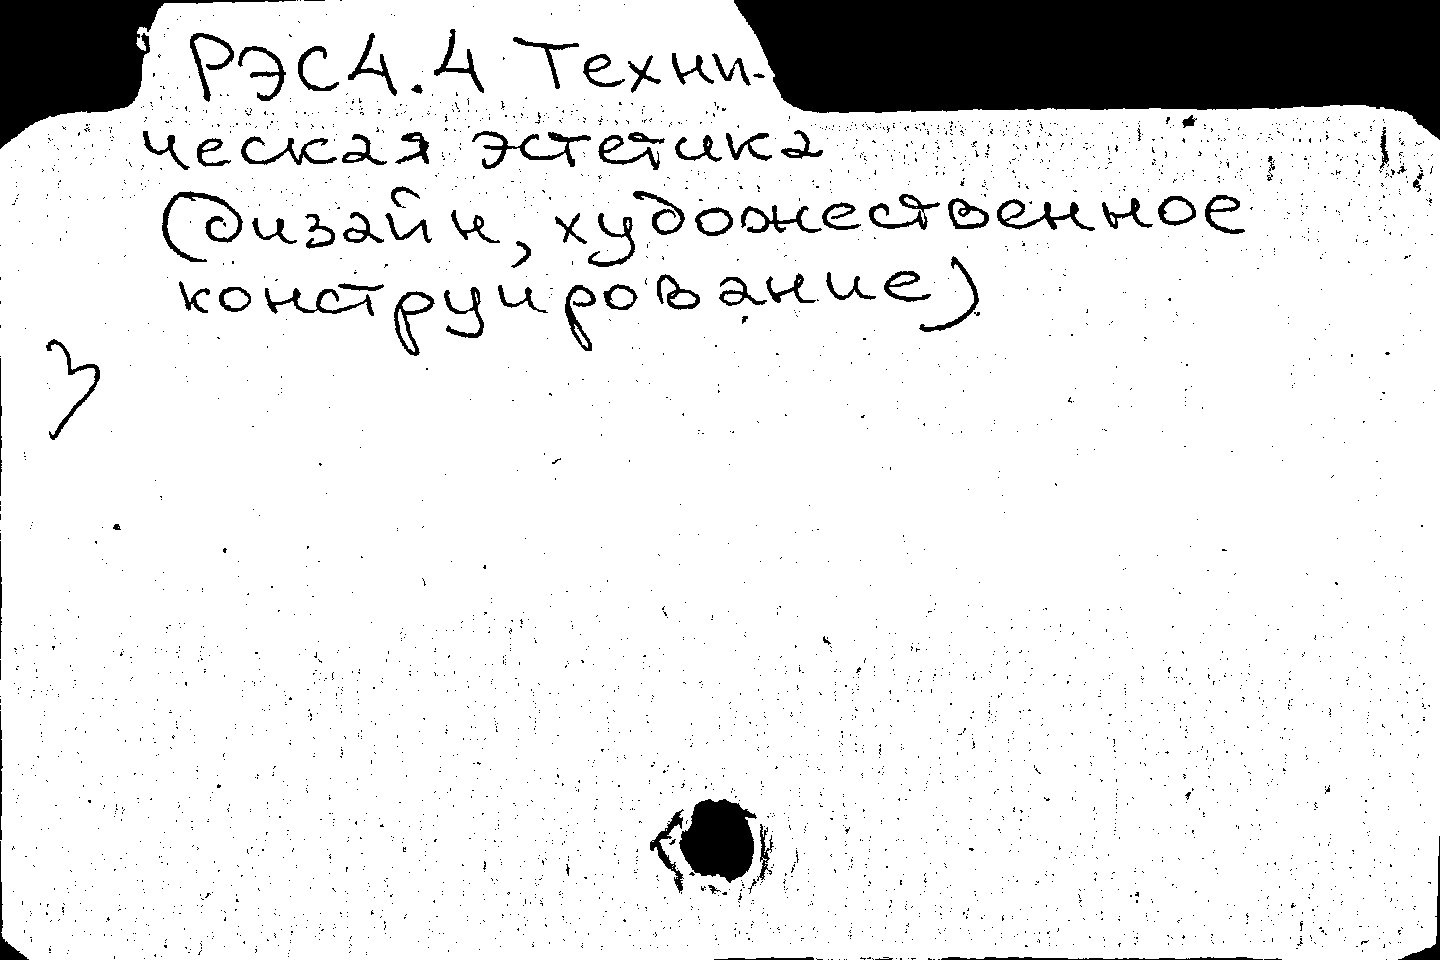 РЭС4.4 Техни-
ческая эстетика
(дизайн, художественное
конструирование)
З